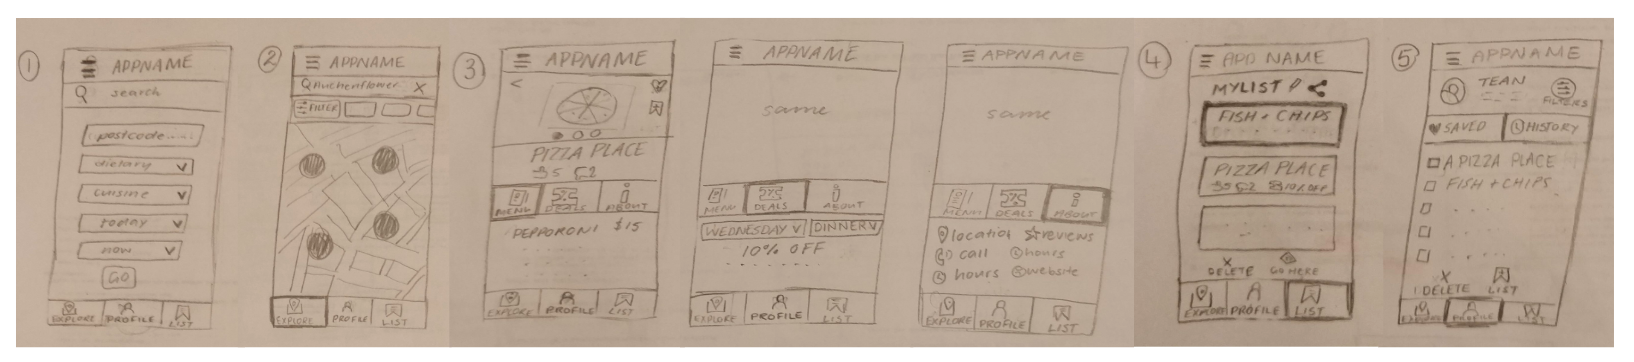 1
APPNAME
search
postcode.....
dietary
cuisine
today
now
GO
EXPLORE
PROFILE
LIST
2
APPNAME
X
FILTER
EXPLORE
PROFILE
LIST
3
APPNAME
<
PIZZA PLACE
MENU
DEALS
ABOUT
PEPPORONI $15
EXPLORE
PROFILE
LIST
APPNAME
same
MENU
DEALS
ABOUT
WEDNESDAY
DINNER
10% OFF
EXPLORE
PROFILE
LIST
APPNAME
same
MENU
DEALS
ABOUT
location
reviews
call
hours
hours
website
EXPLORE
PROFILE
LIST
4
APP NAME
MYLIST
FISH + CHIPS
PIZZA PLACE
10% OFF
X
DELETE
GO HERE
EXPLORE
PROFILE
LIST
5
APPNAME
TEAN
FILTERS
SAVED
HISTORY
A PIZZA PLACE
FISH + CHIPS
X
DELETE
LIST
EXPLORE
PROFILE
LIST